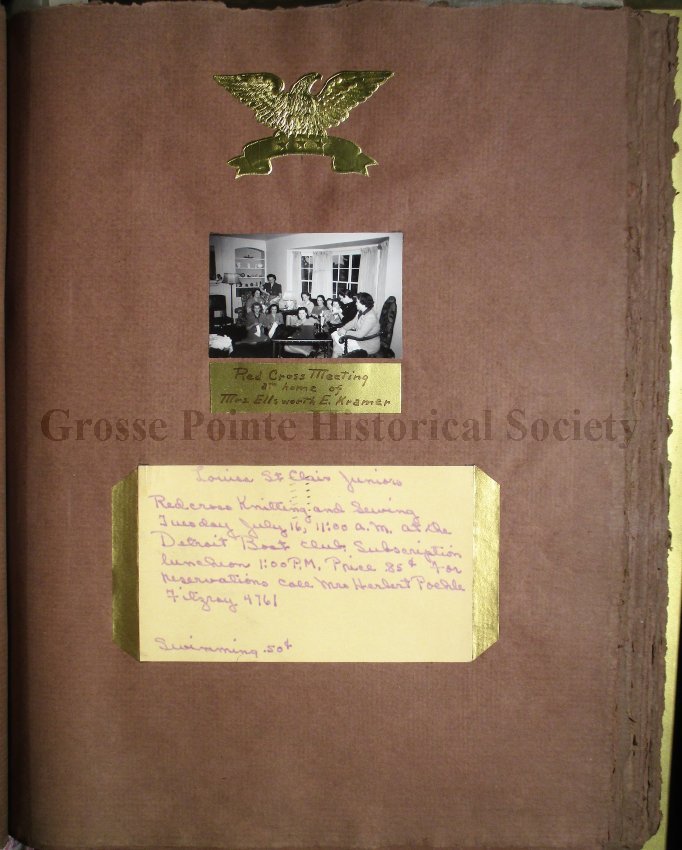 Red Cross Meeting
at home of
Mrs. Ellsworth E. Kramer
Grosse Pointe Historical Society
Louisa St Clair Juniors
Redcross Knitting and Sewing
Tuesday July 16, 11:00 A.M. at the
Detroit Boat Club. Subscription
luncheon 1:00 P.M. Price 85¢ For
reservations call Mrs Herbert
Fitzroy 4761
Swimming .50¢